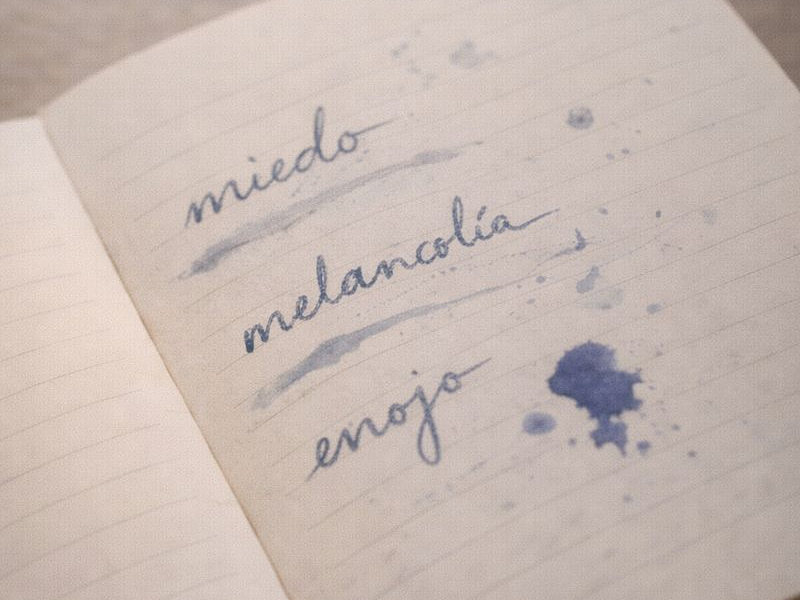 miedo
melancolía
enojo